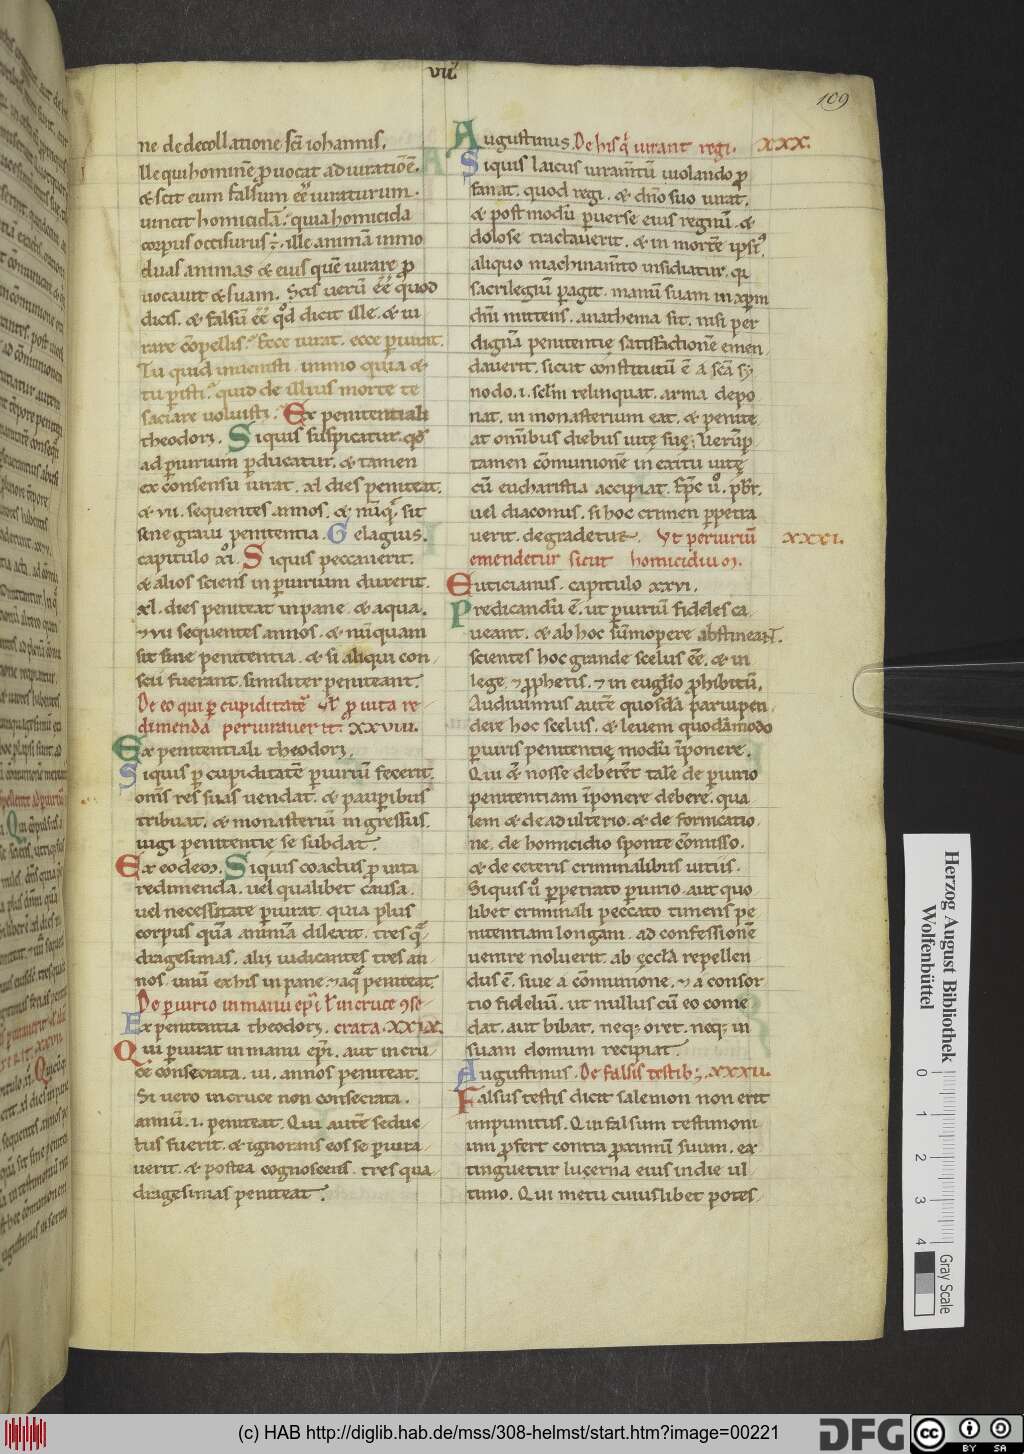 vii.
109
ne de decollatione sc̄i iohannis.
Ille qui hominē ꝓuocat ad iurationē.
& scit eum falsum eē iuraturum.
uincit homicidā. quia homicida
corpus occisurus ÷. ille animā immo
duas animas & eius quē iurare ꝓ
uocauit & suam. Scis uerū eē quod
dicis. & falsū eē qd̄ dicit ille. & iu
rare cōpellis. Ecce iurat. ecce ꝑiurat.
Tu quid inuenisti. immo quia &
tu ꝑisti. quid de illius morte te
saciare uoluisti. Ex penitentiali
theodorꝫ. Siquis suspicatur. qd̄
ad ꝑiurium ꝑducatur. & tamen
ex consensu iurat. xl dies peniteat.
& vii. sequentes annos. & nūq̄ sit
sine graui penitentia. Gelagius.
capitulo xi. Siquis peccauerit.
& alios sciens in ꝑiurium duxerit.
xl. dies peniteat in pane. & aqua.
⁊ vii sequentes annos. & nūquam
sit sine penitentia. & si aliqui con
scii fuerant. similiter peniteant.
De eo qui ꝑ cupiditatē uł ꝓ uita re
dimenda periurauerit. XXVIII.
Ex penitentiali theodorꝫ.
Siquis ꝑ cupiditatē ꝑiuriū fecerit.
om̄s res suas uendat. & pauꝑibus
tribuat. & monasteriū ingressus.
iugi penitentię se subdat.
Ex eodem. Siquis coactus ꝓ uita
redimenda. uel qualibet causa.
uel necessitate ꝑiurat. quia plus
corpus quā animā dilexit. tres q̄
dragesimas. alij iudicantes tres an
nos. unū ex his in pane. ⁊ aq̄ peniteat.
De ꝑiurio in manu ep̄i ł in cruce ꝯse
Ex penitentia theodorꝫ. crata. XXIX.
Qui ꝑiurat in manu ep̄i. aut in cru
ce cōnsecrata. iii. annos peniteat.
Si uero in cruce non consecrata.
annū. i. peniteat. Qui autē seduc
tus fuerit. & ignorans eos se ꝑiura
uerit. & postea cognoscens. tres qua
dragesimas peniteat.
Augustinus. De his q̇ iurant regi. XXX.
Siquis laicus iuram̄tū uiolando ꝓ
fanat. quod regi. & dn̄o suo iurat.
& post modū ꝑuerse eius regnū. &
dolose tractauerit. & in mortē ipsi᷒.
aliquo machinam̄to insidiatur. qͥ
sacrilegiū ꝑagit. manū suam in xp̄m
dn̄i mittens. anathema sit. nisi per
dignā penitentię satisfactionē emen
dauerit. sicut constitutū ē a sc̄a sy
nodo. i. sclm̄ relinquat. arma depo
nat. in monasterium eat. & penite
at omībus diebus uitę suę. Uerūꝑ
tamen cōmunionē in exitu uitę
cū eucharistia accipiat. Ep̄c ů. pb̄r.
uel diaconus. si hoc crimen ꝑpetra
uerit. degradetur. Vt periuriū XXXI.
emendetur sicut homicidium.
Euticianus. capitulo xxvi.
Predicandū ē. ut ꝑiuriū fideles ca
ueant. & ab hoc sūmopere abstineant.
scientes hoc grande scelus eē. & in
lege. ⁊ ꝓphetis. ⁊ in euglio ꝓhibitū.
Audiuimus autē quosdā paruipen
dere hoc scelus. & leuem quodāmodo
ꝑiuris penitentię modū īponere.
Qui q̄ nosse deberēt talē de ꝑiurio
penitentiam īponere debere. qua
lem & de adulterio. & de fornicatio
ne. de homicidio sponte cōmisso.
& de ceteris criminalibus uitiis.
Siquis ů ꝑpetrato ꝑiurio. aut quo
libet criminali peccato timens pe
nitentiam longam. ad confessionē
uenire noluerit. ab ęccła repellen
dus ē. siue a cōmunione. ⁊ a consor
tio fideliū. ut nullus cū eo come
dat. aut bibat. neqꝫ oret. neqꝫ in
suam domum recipiat.
Augustinus. De falsis testibꝫ. XXXII.
Falsus testis dicit salemon non erit
impunitus. Qui falsum testimoni
um ꝓfert contra ꝓximū suum. ex
tinguetur lucerna eius in die ul
timo. Qui metu cuiuslibet potes
Herzog August Bibliothek
Wolfenbüttel
0 1 2 3 4
Gray Scale
(c) HAB http://diglib.hab.de/mss/308-helmst/start.htm?image=00221
DFG
cc
BY SA